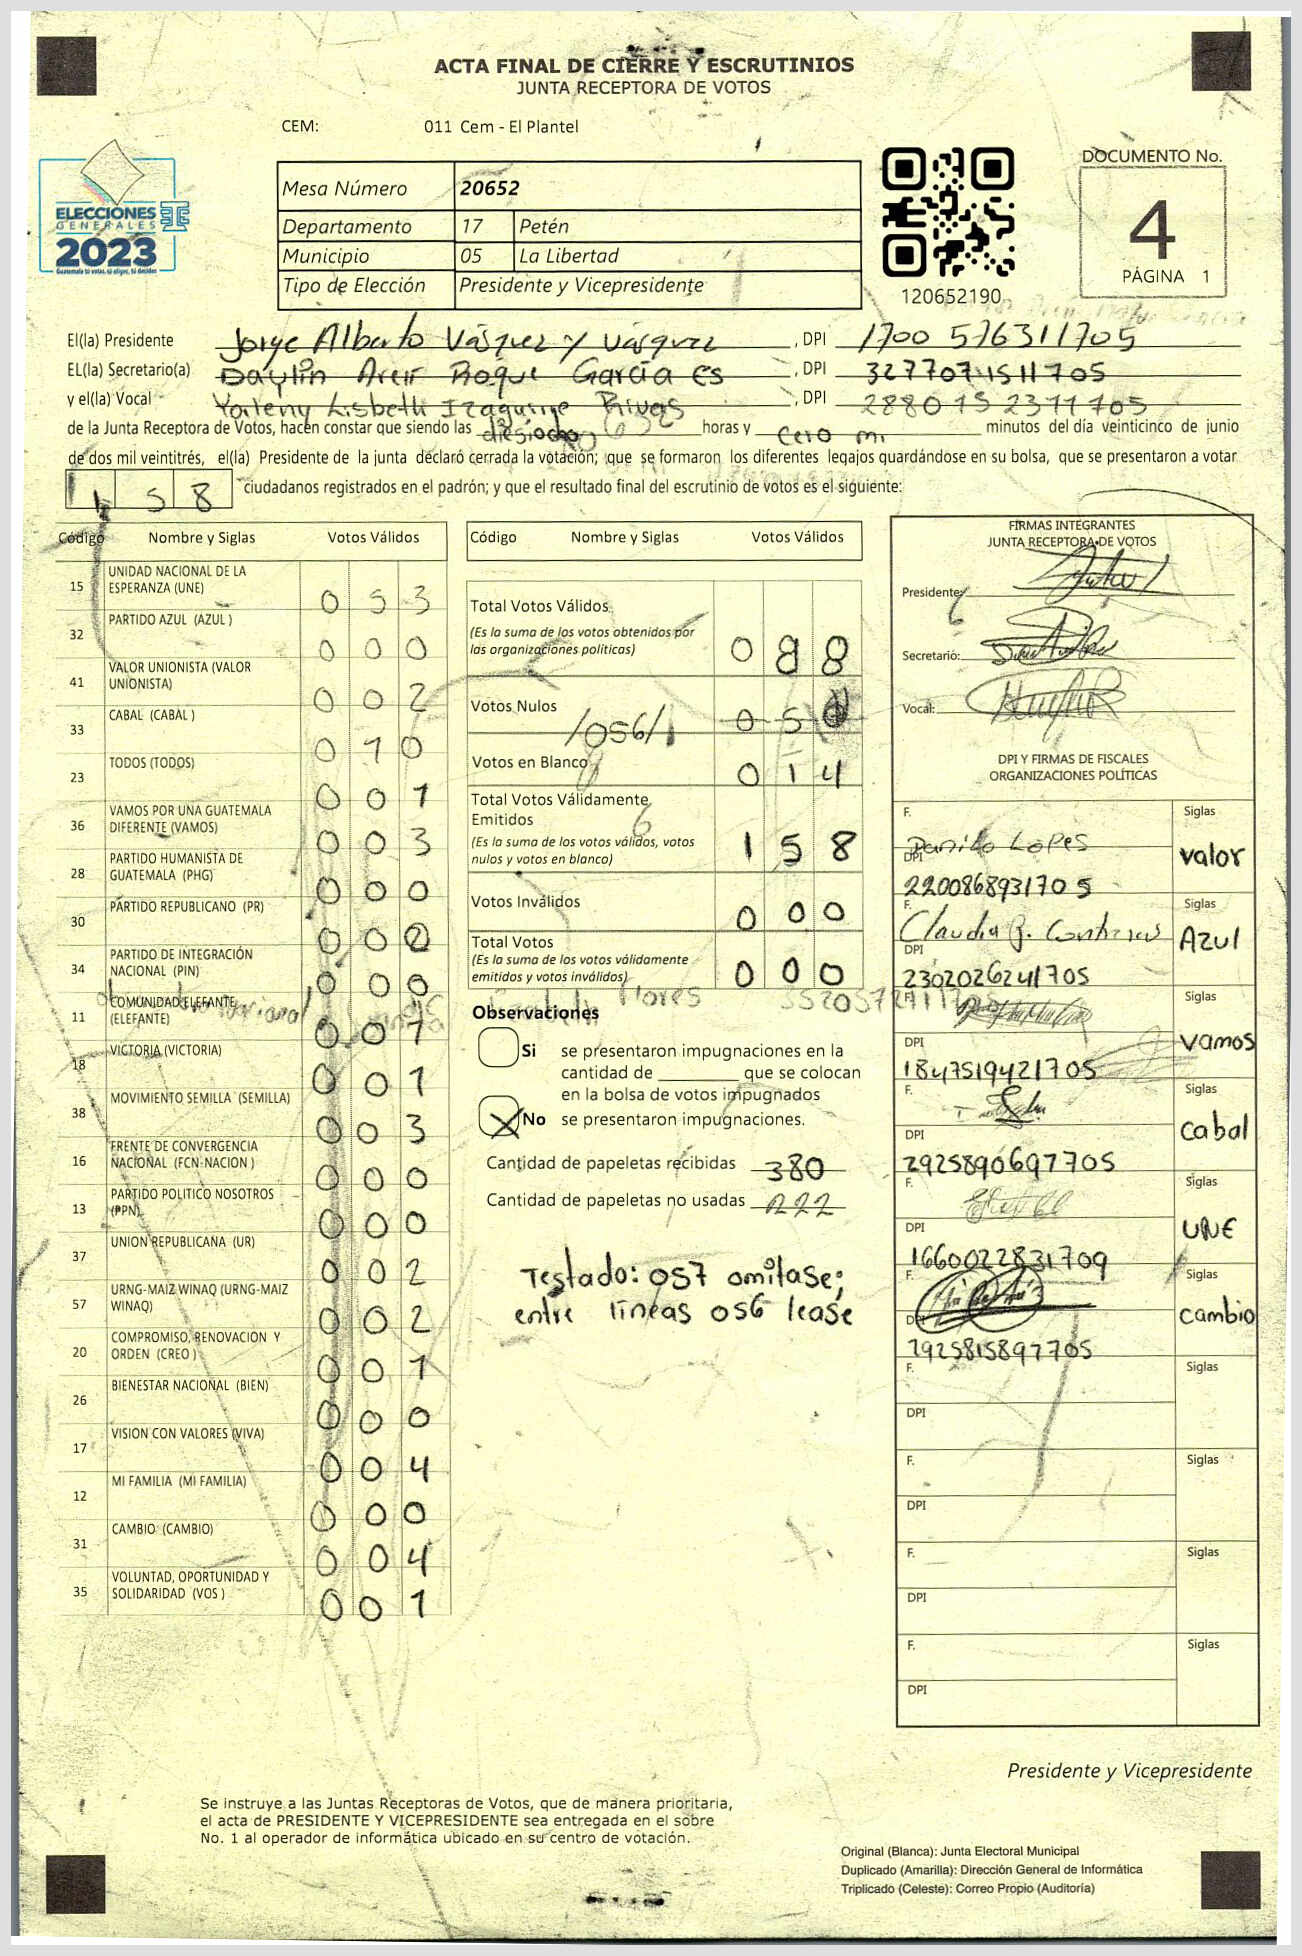 ACTA FINAL DE CIERRE Y ESCRUTINIOS
JUNTA RECEPTORA DE VOTOS
CEM: 011 Cem - El Plantel
ELECCIONES
GENERALES
2023
Guatemala tú votas, tú eliges, tú decides
Mesa Número 20652
Departamento 17 Petén
Municipio 05 La Libertad
Tipo de Elección Presidente y Vicepresidente
120652190
DOCUMENTO No.
4
PÁGINA 1
El(la) Presidente Jorge Alberto Vásquez y Vásquez , DPI 1700 576311705
EL(la) Secretario(a) Daylin Roque García , DPI 3277071511705
y el(la) Vocal Lisbeth Rivas , DPI 2880152311705
de la Junta Receptora de Votos, hacen constar que siendo las diesiocho horas y cero minutos del día veinticinco de junio
de dos mil veintitrés, el(la) Presidente de la junta declaró cerrada la votación; que se formaron los diferentes legajos guardándose en su bolsa, que se presentaron a votar
1 5 8 ciudadanos registrados en el padrón; y que el resultado final del escrutinio de votos es el siguiente:
Código Nombre y Siglas Votos Válidos
15 UNIDAD NACIONAL DE LA ESPERANZA (UNE) 0 5 3
32 PARTIDO AZUL (AZUL ) 0 0 0
41 VALOR UNIONISTA (VALOR UNIONISTA) 0 0 2
33 CABAL (CABAL ) 0 1 0
23 TODOS (TODOS) 0 0 1
36 VAMOS POR UNA GUATEMALA DIFERENTE (VAMOS) 0 0 3
28 PARTIDO HUMANISTA DE GUATEMALA (PHG) 0 0 0
30 PARTIDO REPUBLICANO (PR) 0 0 2
34 PARTIDO DE INTEGRACIÓN NACIONAL (PIN) 0 0 0
11 COMUNIDAD ELEFANTE (ELEFANTE) 0 0 1
18 VICTORIA (VICTORIA) 0 0 1
38 MOVIMIENTO SEMILLA (SEMILLA) 0 0 3
16 FRENTE DE CONVERGENCIA NACIONAL (FCN-NACION ) 0 0 0
13 PARTIDO POLITICO NOSOTROS (PPN) 0 0 0
37 UNION REPUBLICANA (UR) 0 0 2
57 URNG-MAIZ WINAQ (URNG-MAIZ WINAQ) 0 0 2
20 COMPROMISO, RENOVACION Y ORDEN (CREO ) 0 0 1
26 BIENESTAR NACIONAL (BIEN) 0 0 0
17 VISION CON VALORES (VIVA) 0 0 4
12 MI FAMILIA (MI FAMILIA) 0 0 0
31 CAMBIO (CAMBIO) 0 0 4
35 VOLUNTAD, OPORTUNIDAD Y SOLIDARIDAD (VOS ) 0 0 1
Código Nombre y Siglas Votos Válidos
Total Votos Válidos 0 8 8
(Es la suma de los votos obtenidos por
las organizaciones políticas)
Votos Nulos /056/ 0 5
Votos en Blanco 0 1 4
Total Votos Válidamente
Emitidos 1 5 8
(Es la suma de los votos válidos, votos
nulos y votos en blanco)
Votos Inválidos 0 0 0
Total Votos 0 0 0
(Es la suma de los votos válidamente
emitidos y votos inválidos)
Flores
Observaciones
Si se presentaron impugnaciones en la
cantidad de ________ que se colocan
en la bolsa de votos impugnados
X No se presentaron impugnaciones.
Cantidad de papeletas recibidas 380
Cantidad de papeletas no usadas 222
Testado: 057 omitase;
entre líneas 056 lease
FIRMAS INTEGRANTES
JUNTA RECEPTORA DE VOTOS
Presidente:
Secretario:
Vocal:
DPI Y FIRMAS DE FISCALES
ORGANIZACIONES POLÍTICAS
F. Danilo Lopes Siglas
DPI 2200868931705 valor
F. Claudia Contreras Siglas
DPI 2302026241705 Azul
F. Siglas
DPI 1847519421705 vamos
F. Siglas
DPI 2925890697705 cabal
F. Siglas
DPI 1660022831709 UNE
F. Siglas
DPI 1925815897705 cambio
F. Siglas
DPI
F. Siglas
DPI
F. Siglas
DPI
F. Siglas
DPI
Presidente y Vicepresidente
Se instruye a las Juntas Receptoras de Votos, que de manera prioritaria,
el acta de PRESIDENTE Y VICEPRESIDENTE sea entregada en el sobre
No. 1 al operador de informática ubicado en su centro de votación.
Original (Blanca): Junta Electoral Municipal
Duplicado (Amarilla): Dirección General de Informática
Triplicado (Celeste): Correo Propio (Auditoría)